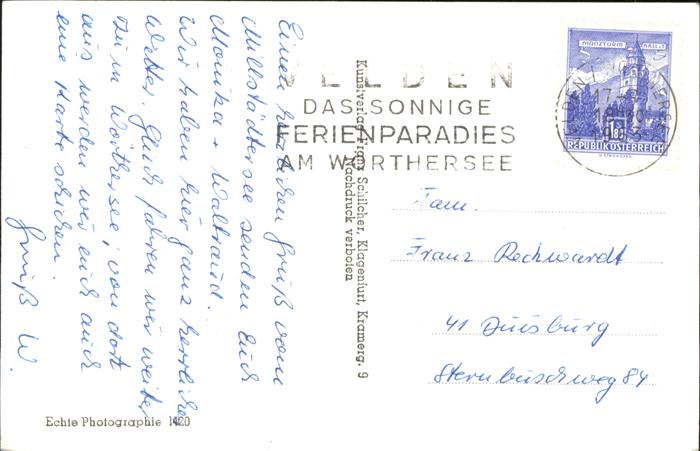 Einen herzlichen Gruß vom
Millstädtersee senden Euch
Monika + Waltraud.
Wir haben hier ganz herrliches
Wetter. Gleich fahren wir weiter
zum Wörthersee, von dort
aus werden wir euch auch
eine Karte schicken.
Gruß W.
Echte Photographie 1420
Kunstverlag Franz Schilcher, Klagenfurt, Kramerg. 9
Nachdruck verboten
VELDEN
DAS SONNIGE
FERIENPARADIES
AM WÖRTHERSEE
MÜNZTURM HALL i. T.
S 1.80
REPUBLIK ÖSTERREICH
Fam.
Franz Rechwardt
41 Duisburg
Sternbuschweg 84